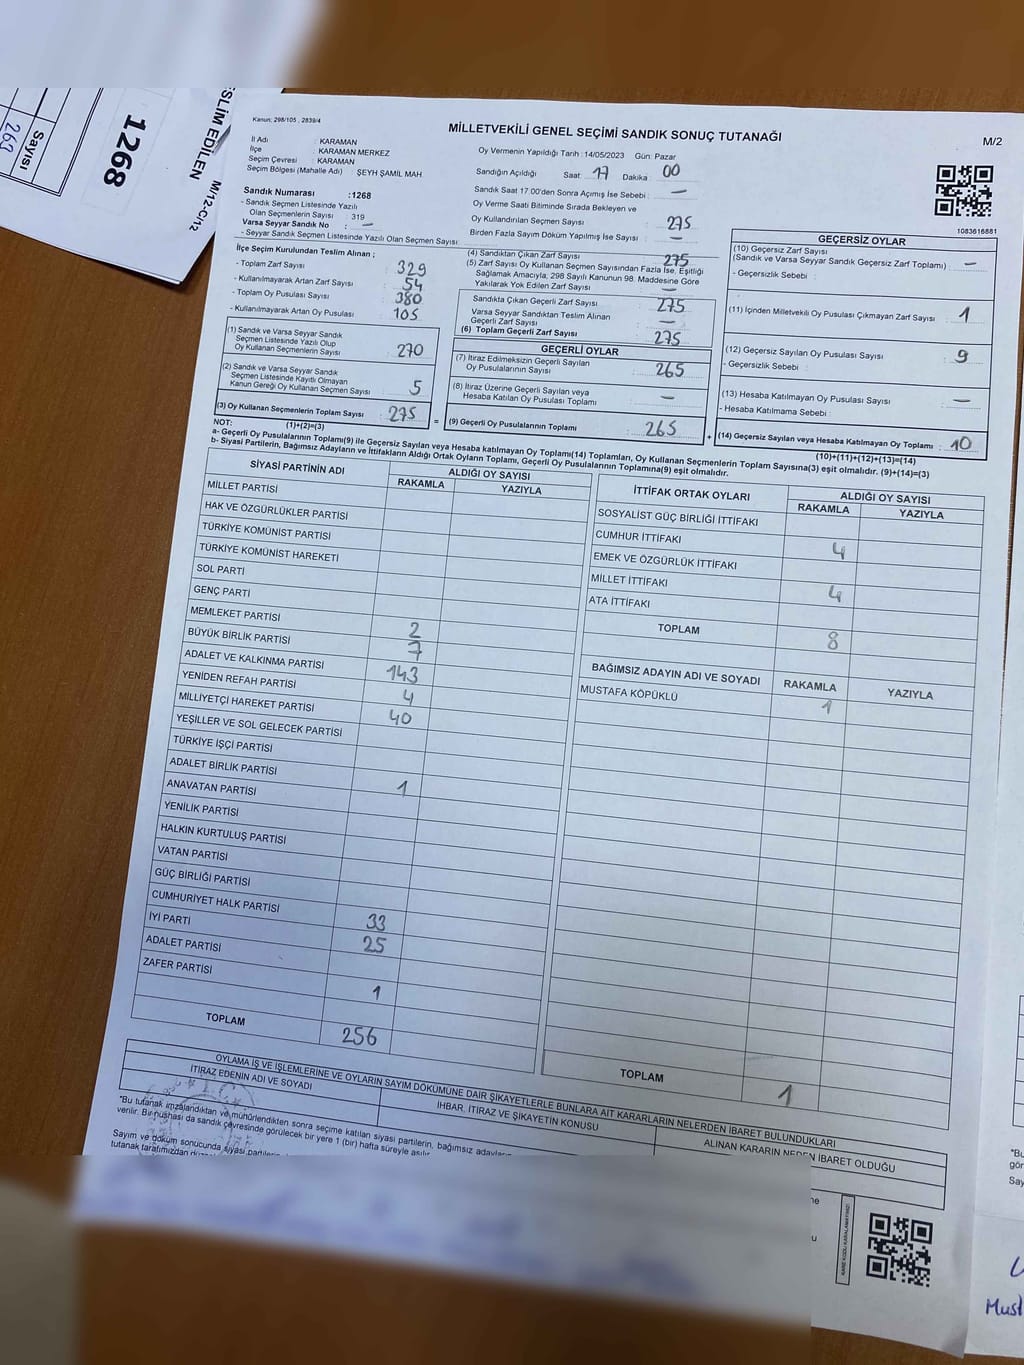 SLİM EDİLEN
M/12-C/12
1268
Sayısı
263
Kanun; 298/105 , 2839/4
MİLLETVEKİLİ GENEL SEÇİMİ SANDIK SONUÇ TUTANAĞI
M/2
İl Adı : KARAMAN
İlçe : KARAMAN MERKEZ
Seçim Çevresi : KARAMAN
Seçim Bölgesi (Mahalle Adı) ŞEYH ŞAMİL MAH.
Sandık Numarası :1268
- Sandık Seçmen Listesinde Yazılı
Olan Seçmenlerin Sayısı : 319
Varsa Seyyar Sandık No : —
- Seyyar Sandık Seçmen Listesinde Yazılı Olan Seçmen Sayısı:
İlçe Seçim Kurulundan Teslim Alınan ;
- Toplam Zarf Sayısı : 329
- Kullanılmayarak Artan Zarf Sayısı : 54
- Toplam Oy Pusulası Sayısı : 380
- Kullanılmayarak Artan Oy Pusulası : 105
(1) Sandık ve Varsa Seyyar Sandık
Seçmen Listesinde Yazılı Olup
Oy Kullanan Seçmenlerin Sayısı : 270
(2) Sandık ve Varsa Seyyar Sandık
Seçmen Listesinde Kayıtlı Olmayan
Kanun Gereği Oy Kullanan Seçmen Sayısı : 5
(3) Oy Kullanan Seçmenlerin Toplam Sayısı : 275
(1)+(2)=(3)
Oy Vermenin Yapıldığı Tarih :14/05/2023 Gün: Pazar
Sandığın Açıldığı Saat 17 Dakika 00
Sandık Saat 17:00'den Sonra Açımış İse Sebebi : —
Oy Verme Saati Bitiminde Sırada Bekleyen ve
Oy Kullandırılan Seçmen Sayısı : 275
Birden Fazla Sayım Döküm Yapılmış İse Sayısı : —
(4) Sandıktan Çıkan Zarf Sayısı : 275
(5) Zarf Sayısı Oy Kullanan Seçmen Sayısından Fazla İse, Eşitliği
Sağlamak Amacıyla, 298 Sayılı Kanunun 98. Maddesine Göre
Yakılarak Yok Edilen Zarf Sayısı : —
Sandıkta Çıkan Geçerli Zarf Sayısı : 275
Varsa Seyyar Sandıktan Teslim Alınan
Geçerli Zarf Sayısı : —
(6) Toplam Geçerli Zarf Sayısı : 275
GEÇERLİ OYLAR
(7) İtiraz Edilmeksizin Geçerli Sayılan
Oy Pusulalarının Sayısı : 265
(8) İtiraz Üzerine Geçerli Sayılan veya
Hesaba Katılan Oy Pusulası Toplamı : —
= (9) Geçerli Oy Pusulalarının Toplamı : 265
1083616881
GEÇERSİZ OYLAR
(10) Geçersiz Zarf Sayısı
(Sandık ve Varsa Seyyar Sandık Geçersiz Zarf Toplamı) : —
- Geçersizlik Sebebi :
(11) İçinden Milletvekili Oy Pusulası Çıkmayan Zarf Sayısı : 1
(12) Geçersiz Sayılan Oy Pusulası Sayısı : 9
- Geçersizlik Sebebi :
(13) Hesaba Katılmayan Oy Pusulası Sayısı : —
- Hesaba Katılmama Sebebi :
+ (14) Geçersiz Sayılan veya Hesaba Katılmayan Oy Toplamı : 10
(10)+(11)+(12)+(13)=(14)
NOT:
a- Geçerli Oy Pusulalarının Toplamı(9) ile Geçersiz Sayılan veya Hesaba katılmayan Oy Toplamı(14) Toplamları, Oy Kullanan Seçmenlerin Toplam Sayısına(3) eşit olmalıdır. (9)+(14)=(3)
b- Siyasi Partilerin, Bağımsız Adayların ve İttifakların Aldığı Ortak Oyların Toplamı, Geçerli Oy Pusulalarının Toplamına(9) eşit olmalıdır.
SİYASİ PARTİNİN ADI ALDIĞI OY SAYISI
RAKAMLA YAZIYLA
MİLLET PARTİSİ
HAK VE ÖZGÜRLÜKLER PARTİSİ
TÜRKİYE KOMÜNİST PARTİSİ
TÜRKİYE KOMÜNİST HAREKETİ
SOL PARTİ
GENÇ PARTİ
MEMLEKET PARTİSİ 2
BÜYÜK BİRLİK PARTİSİ 7
ADALET VE KALKINMA PARTİSİ 143
YENİDEN REFAH PARTİSİ 4
MİLLİYETÇİ HAREKET PARTİSİ 40
YEŞİLLER VE SOL GELECEK PARTİSİ
TÜRKİYE İŞÇİ PARTİSİ
ADALET BİRLİK PARTİSİ
ANAVATAN PARTİSİ 1
YENİLİK PARTİSİ
HALKIN KURTULUŞ PARTİSİ
VATAN PARTİSİ
GÜÇ BİRLİĞİ PARTİSİ
CUMHURİYET HALK PARTİSİ 33
İYİ PARTİ 25
ADALET PARTİSİ
ZAFER PARTİSİ 1
TOPLAM 256
İTTİFAK ORTAK OYLARI ALDIĞI OY SAYISI
RAKAMLA YAZIYLA
SOSYALİST GÜÇ BİRLİĞİ İTTİFAKI
CUMHUR İTTİFAKI 4
EMEK VE ÖZGÜRLÜK İTTİFAKI
MİLLET İTTİFAKI 4
ATA İTTİFAKI
TOPLAM 8
BAĞIMSIZ ADAYIN ADI VE SOYADI RAKAMLA YAZIYLA
MUSTAFA KÖPÜKLÜ 1
TOPLAM 1
OYLAMA İŞ VE İŞLEMLERİNE VE OYLARIN SAYIM DÖKÜMÜNE DAİR ŞİKAYETLERLE BUNLARA AİT KARARLARIN NELERDEN İBARET BULUNDUKLARI
İTİRAZ EDENİN ADI VE SOYADI İHBAR, İTİRAZ VE ŞİKAYETİN KONUSU ALINAN KARARIN NEDEN İBARET OLDUĞU
"Bu tutanak imzalandıktan ve mühürlendikten sonra seçime katılan siyasi partilerin, bağımsız adayların
verilir. Bir nüshası da sandık çevresinde görülecek bir yere 1 (bir) hafta süreyle asılır.
Sayım ve döküm sonucunda siyasi partilerin
tutanak tarafımızdan
KARE KODU KARALAMAYINIZ!
"Bu
gör
Say
Must